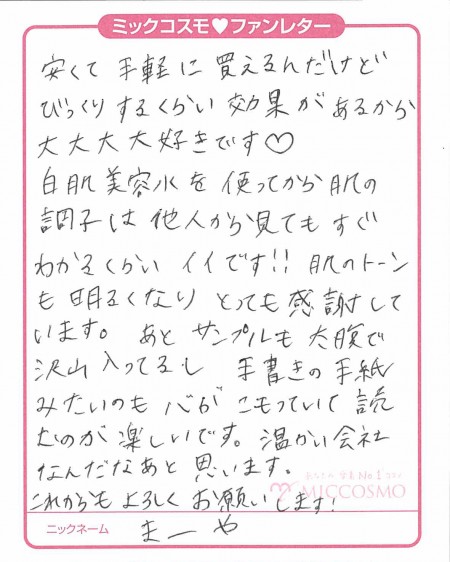 ミックコスモ♥ファンレター
安くて 手軽に 買えるんだけど
びっくりするくらい 効果が あるから
大大大大好きです♡
白肌美容水を 使ってから 肌の
調子は 他人から見ても すぐ
わかるくらい イイです!! 肌のトーン
も 明るくなり とっても 感謝して
います。 あと サンプルも 太腹で
沢山 入ってるし 手書きの 手紙
みたいのも 心が こもっていて 読
むのが 楽しいです。 温かい会社
なんだなあと 思います。
これからも よろしく お願いします!
MICCOSMO
ニックネーム まーや